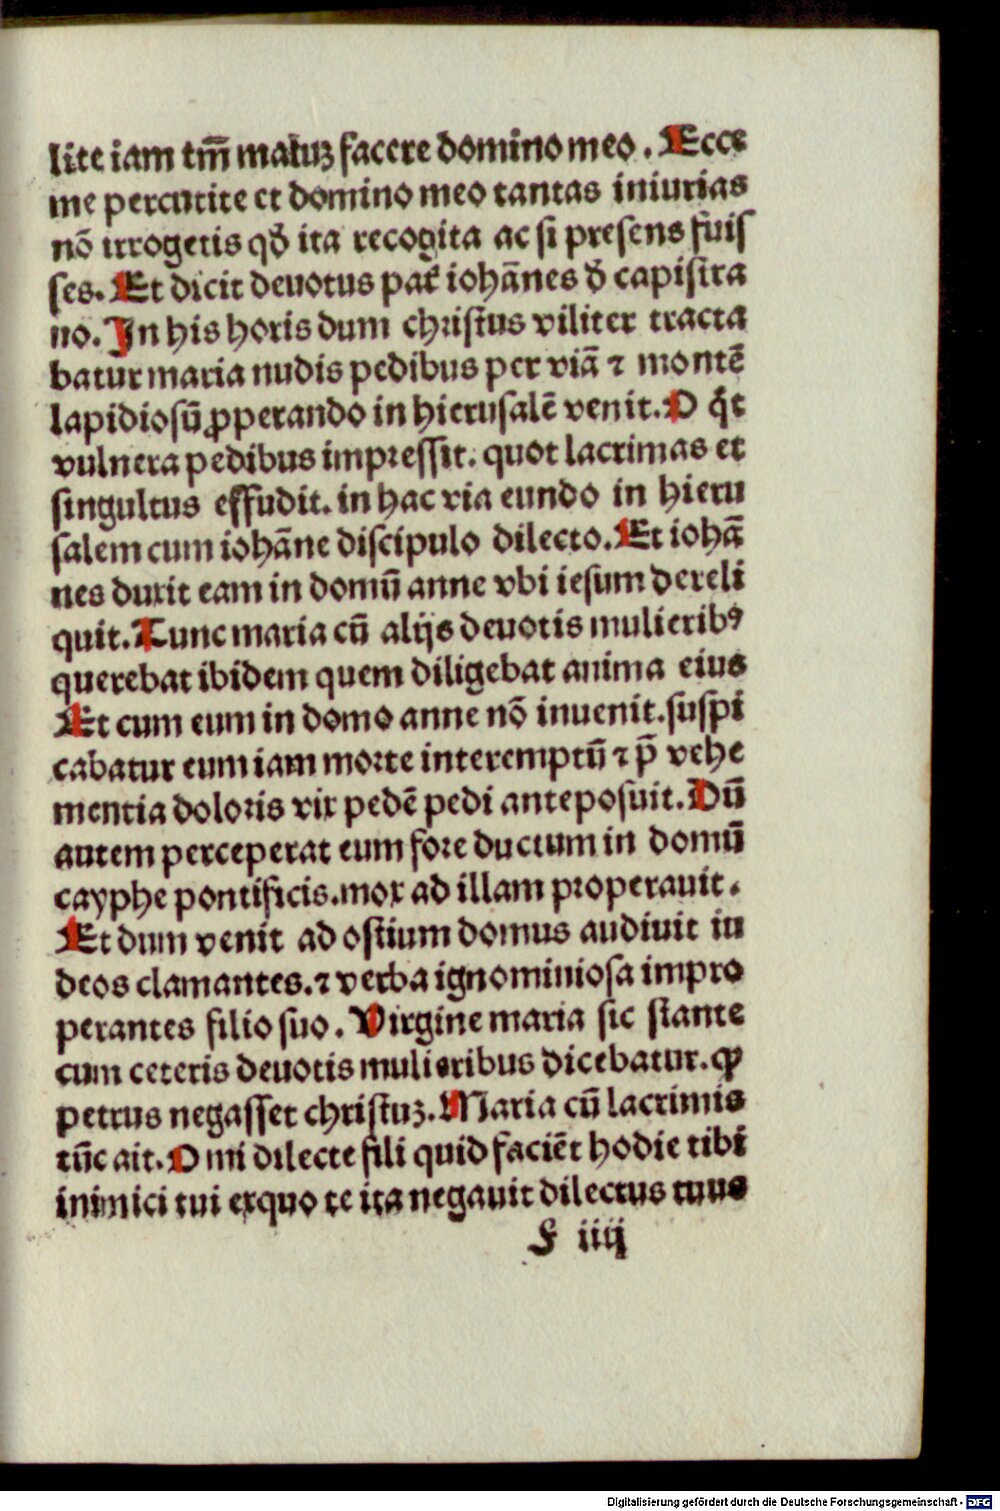 lite iam tm̄ maluꝫ facere domino meo. Ecce
me percutite et domino meo tantas iniurias
nō irrogetis qđ ita recogita ac si presens fuis
ses. Et dicit deuotus pať iohānes đ capistra
no. In his horis dum christus viliter tracta
batur maria nudis pedibus per viā ⁊ montē
lapidiosū ꝓperando in hierusalē venit. O q̄t
vulnera pedibus impressit. quot lacrimas et
singultus effudit. in hac via eundo in hieru
salem cum iohāne discipulo dilecto. Et iohā
nes duxit eam in domū anne vbi iesum dereli
quit. Tunc maria cū alijs deuotis mulieribꝰ
querebat ibidem quem diligebat anima eius
Et cum eum in domo anne nō inuenit. suspi
cabatur eum iam morte interemptū ⁊ p̄ vehe
mentia doloris vix pedē pedi anteposuit. Dū
autem perceperat eum fore ductum in domū
cayphe pontificis. mox ad illam properauit.
Et dum venit ad ostium domus audiuit iu
deos clamantes. ⁊ verba ignominiosa impro
perantes filio suo. Virgine maria sic stante
cum ceteris deuotis mulieribus dicebatur. ꝙ
petrus negasset christuꝫ. Maria cū lacrimis
tūc ait. O mi dilecte fili quid faciēt hodie tibi
inimici tui exquo te ita negauit dilectus tuus
F iiij
Digitalisierung gefördert durch die Deutsche Forschungsgemeinschaft - DFG